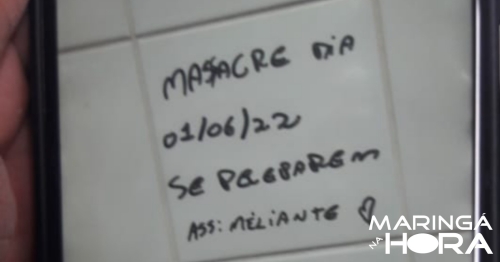 MASSACRE DIA
01/06/22
SE PREPAREM
ASS: MELIANTE
MARINGÁ
NA HORA